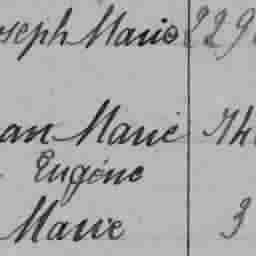 oseph Marie 229
ean Marie 74
Eugène
Marie 3